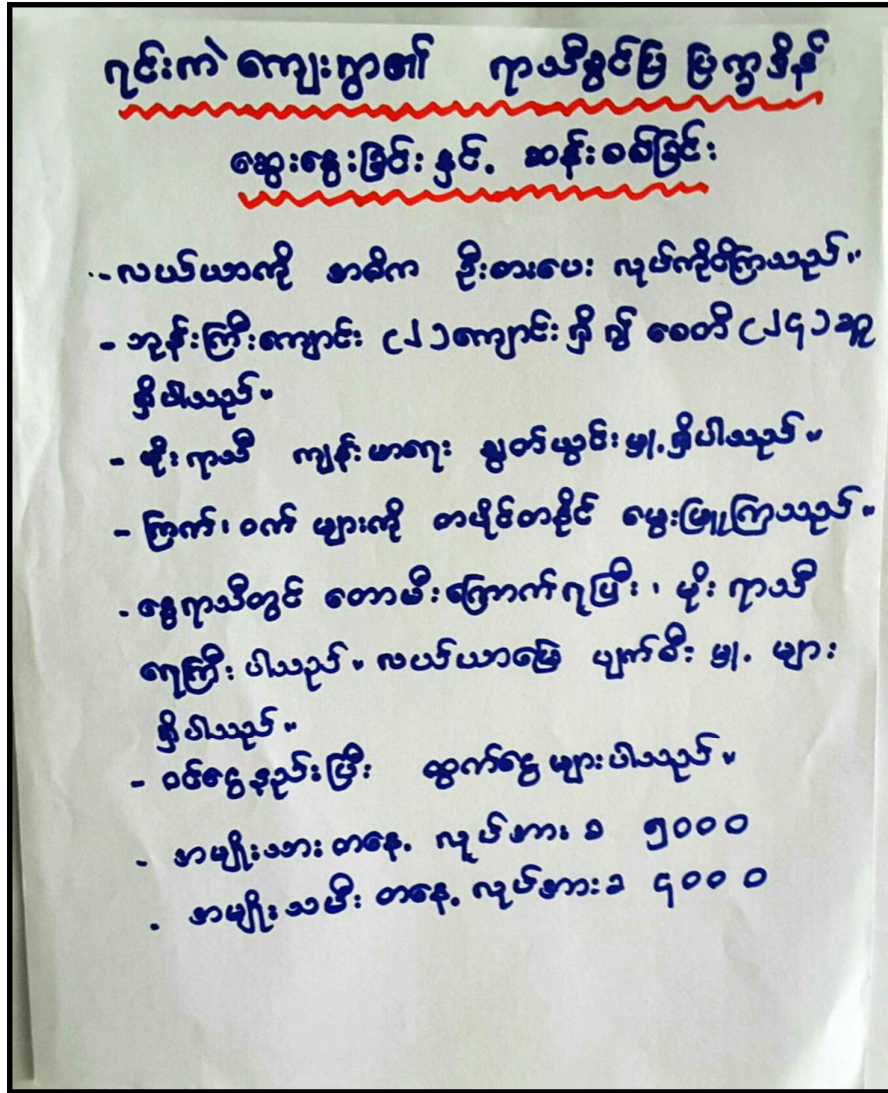 ရင်းကဲ ကျေးရွာ၏ ရာသီခွင်ပြ ပြက္ခဒိန်
ဆွေးနွေးခြင်း နှင့် ဆန်းစစ်ခြင်း
- လယ်ယာကို အဓိက ဦးစားပေး လုပ်ကိုင်ကြသည်။
- ဘုန်းကြီးကျောင်း (၂)ကျောင်း ရှိ၍ စေတီ (၂၄)ဆူ
ရှိပါသည်။
- မိုးရာသီ ကျန်းမာရေး ချွတ်ယွင်းမှု့ရှိပါသည်။
- ကြက်၊ ဝက် များကို တပိုင်တနိုင် မွေးမြူကြသည်။
- နွေရာသီတွင် တောမီးကြောက်ရပြီး၊ မိုးရာသီ
ရေကြီး ပါသည်။ လယ်ယာမြေ ပျက်စီး မှု့ များ
ရှိပါသည်။
- ဝင်ငွေနည်းပြီး ထွက်ငွေ များပါသည်။
- အမျိုးသား တနေ့ လုပ်အားခ ၅၀၀၀
- အမျိုးသမီး တနေ့ လုပ်အားခ ၄၀၀၀